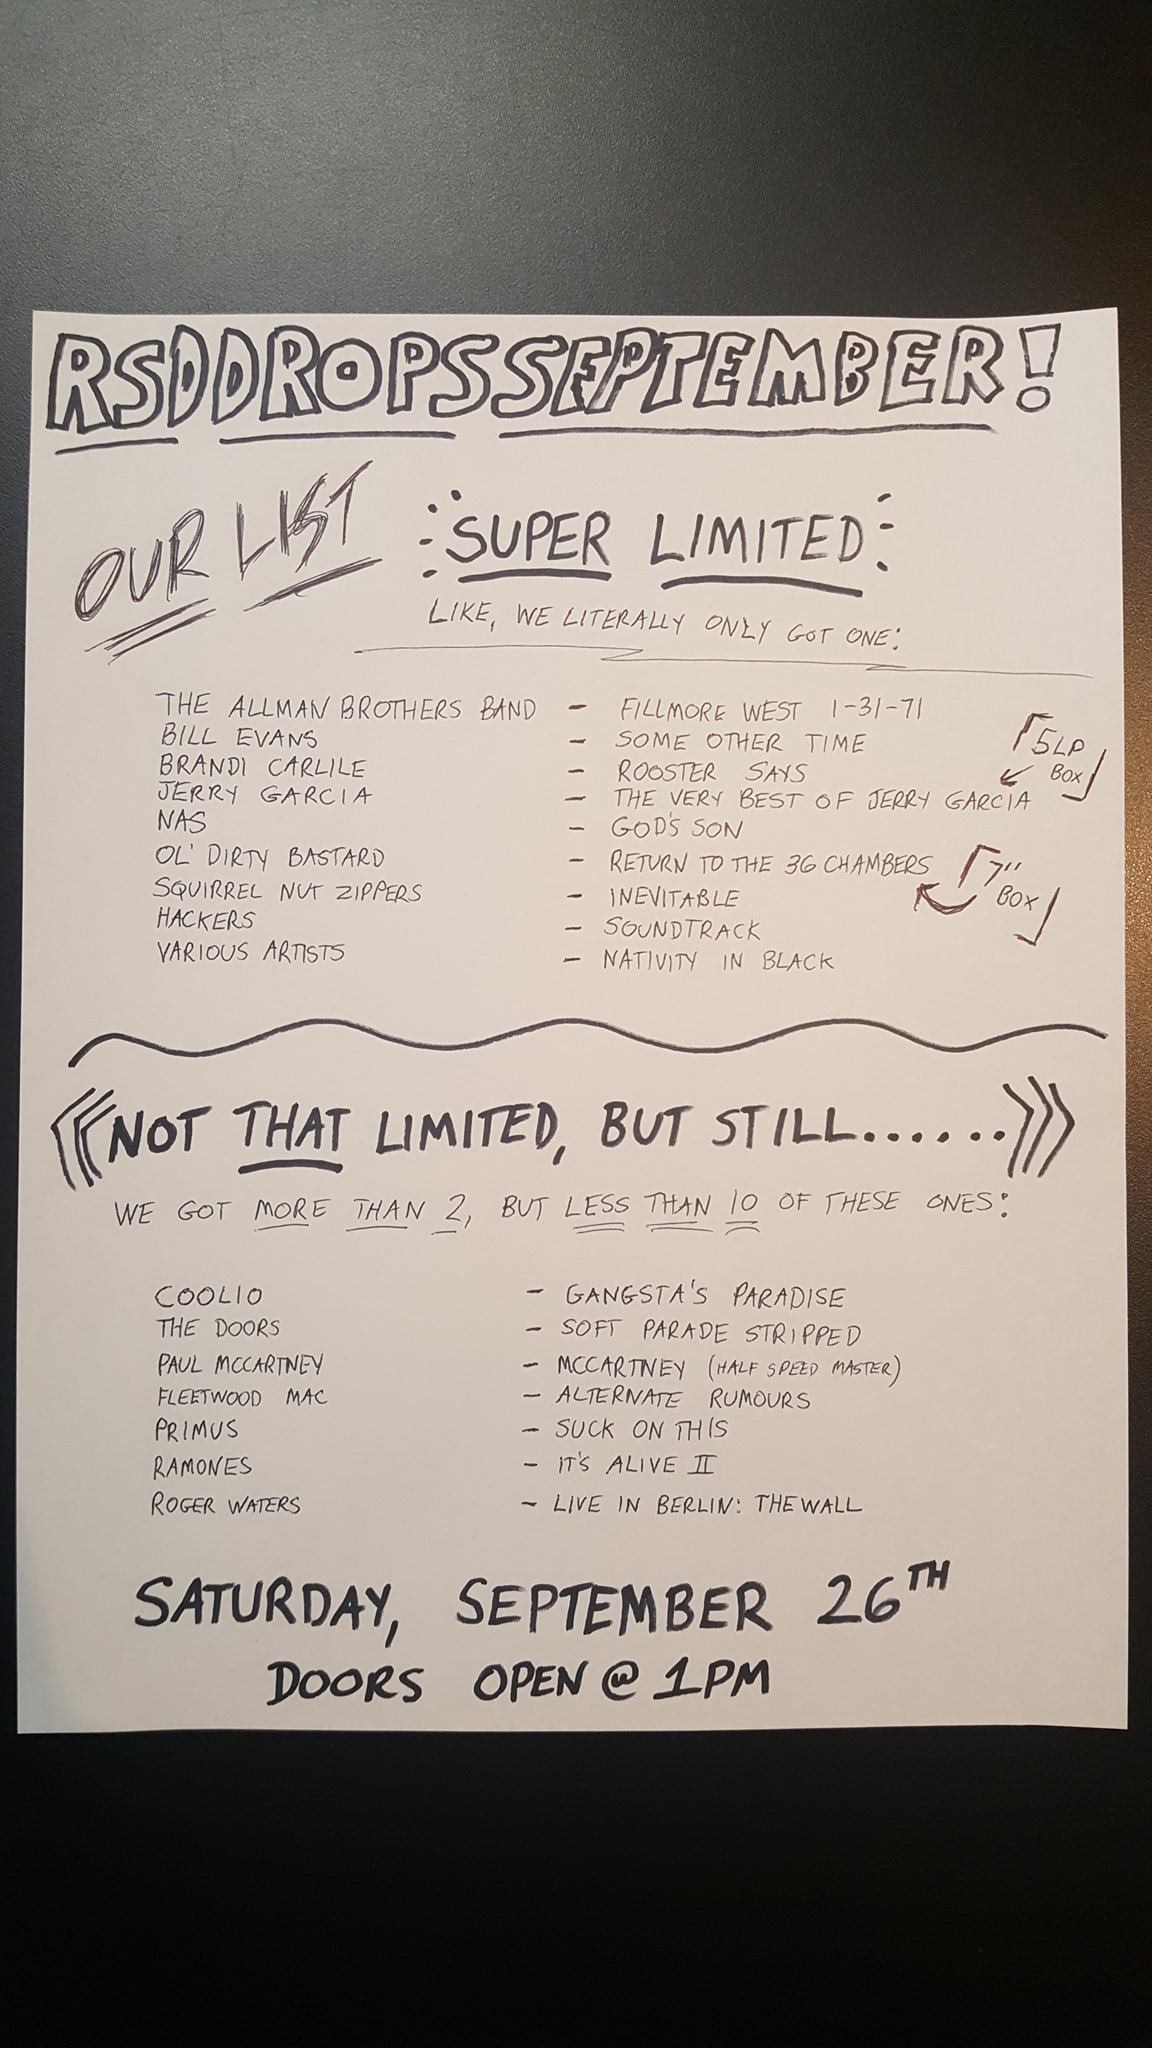 RSD DROPS SEPTEMBER!
OUR LIST
SUPER LIMITED
LIKE, WE LITERALLY ONLY GOT ONE:
THE ALLMAN BROTHERS BAND - FILLMORE WEST 1-31-71
BILL EVANS - SOME OTHER TIME
BRANDI CARLILE - ROOSTER SAYS
JERRY GARCIA - THE VERY BEST OF JERRY GARCIA [5LP BOX]
NAS - GOD'S SON
OL' DIRTY BASTARD - RETURN TO THE 36 CHAMBERS [7" BOX]
SQUIRREL NUT ZIPPERS - INEVITABLE
HACKERS - SOUNDTRACK
VARIOUS ARTISTS - NATIVITY IN BLACK
NOT THAT LIMITED, BUT STILL......
WE GOT MORE THAN 2, BUT LESS THAN 10 OF THESE ONES:
COOLIO - GANGSTA'S PARADISE
THE DOORS - SOFT PARADE STRIPPED
PAUL MCCARTNEY - MCCARTNEY (HALF SPEED MASTER)
FLEETWOOD MAC - ALTERNATE RUMOURS
PRIMUS - SUCK ON THIS
RAMONES - IT'S ALIVE II
ROGER WATERS - LIVE IN BERLIN: THE WALL
SATURDAY, SEPTEMBER 26TH
DOORS OPEN @ 1PM